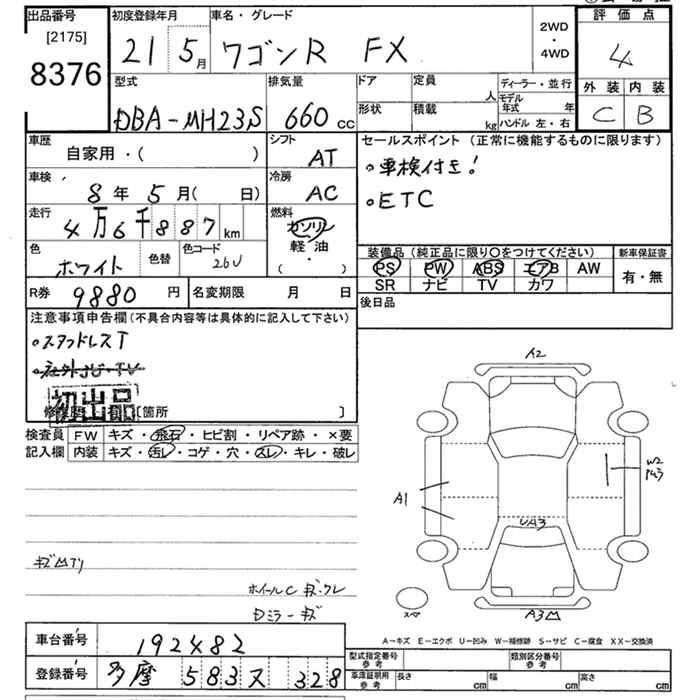 出品番号
[2175]
8376
初度登録年月
21 5月
車名・グレード
ワゴンR FX
2WD
・
4WD
評価点
4
外装 内装
C B
型式
DBA-MH23S
排気量
660 cc
ドア
定員
人
形状
積載
kg
ディーラー・並行
モデル年式 年
ハンドル 左・右
車歴
自家用・( )
シフト
AT
車検
8年 5月( 日)
冷房
AC
走行
4万6千887km
燃料
ガソリン
軽油
・
( )
色
ホワイト
色替
色コード
26U
R券 9880円
名変期限 月 日
セールスポイント (正常に機能するものに限ります)
・車検付き!
・ETC
装備品 (純正品に限り〇をつけてください)
PS PW ABS エアB AW
SR ナビ TV カワ
新車保証書
有・無
後日品
注意事項申告欄(不具合内容等は具体的に記入して下さい)
・スタッドレスT
・社外JU・TV
初出品
[箇所 ]
検査員記入欄
FW キズ・飛石・ヒビ割・リペア跡・×要
内装 キズ・汚レ・コゲ・穴・スレ・キレ・破レ
ホイールC キズ・スレ
Dミラーキズ
A2
A1
W2
UA3
A3
スペア
A-キズ E-エクボ U-凹み W-補修跡 S-サビ C-腐食 XX-交換済
車台番号 192482
登録番号 多摩 583 ヌ 328
型式指定番号 参考
類別区分番号 参考
車庫証明用 参考 長さ cm 幅 cm 高さ cm